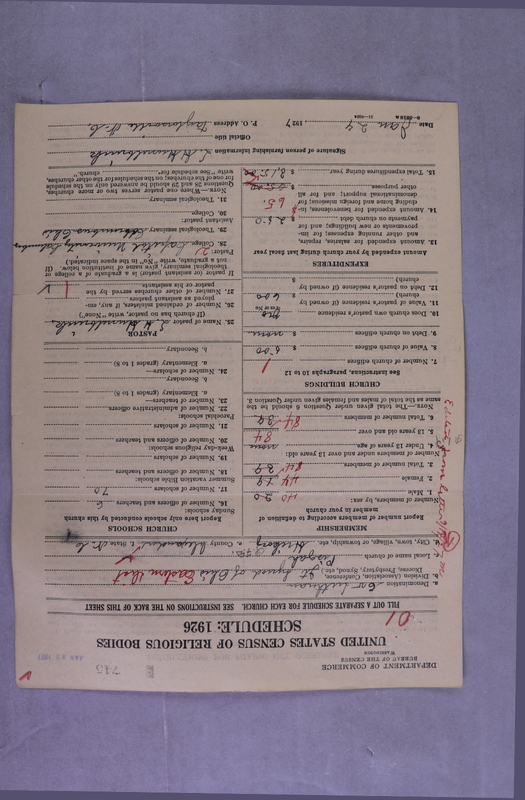 DEPARTMENT OF COMMERCE
BUREAU OF THE CENSUS
WASHINGTON
UNITED STATES CENSUS OF RELIGIOUS BODIES
SCHEDULE: 1926
FILL OUT A SEPARATE SCHEDULE FOR EACH CHURCH. SEE INSTRUCTIONS ON THE BACK OF THIS SHEET
01
a. Denomination Ev. Lutheran
b. Division (Association, Conference, Diocese, Presbytery, Synod, etc.) Jt. Synod of Ohio Eastern Dist
c. Local name of church Pisgah
d. City, town, village, or township, etc. Hickory e. County Alexander f. State N. C.
MEMBERSHIP
Report number of members according to definition of member in your church
Number of members, by sex:
1. Male 40 20
2. Female 44 19
3. Total number of members 84 39
Number of members under and over 13 years old:
4. Under 13 years of age none
5. 13 years old and over 84
6. Total number of members 84 39
NOTE.—The total given under Question 6 should be the same as the total of males and females given under Question 3.
CHURCH BUILDINGS
See instructions, paragraphs 10 to 12
7. Number of church edifices 1
8. Value of church edifices $ 600
9. Debt on church edifices $ none
10. Does church own pastor's residence no
(Yes or No)
11. Value of pastor's residence (if owned by church) $ 600
12. Debt on pastor's residence (if owned by church) $
EXPENDITURES
Amount expended by your church during last fiscal year
13. Amount expended for salaries, repairs, and other running expenses; for improvements or new buildings; and for payments on church debt $ 250
14. Amount expended for benevolences, including home and foreign missions; for denominational support; and for all other purposes $ 65.
15. Total expenditures during year $ 315.00
CHURCH SCHOOLS
Report here only schools conducted by this church
Sunday schools:
16. Number of officers and teachers 6
17. Number of scholars 70
Summer vacation Bible schools:
18. Number of officers and teachers
19. Number of scholars
Week-day religious schools:
20. Number of officers and teachers
21. Number of scholars
Parochial schools:
22. Number of administrative officers
23. Number of teachers—
a. Elementary (grades 1 to 8)
b. Secondary
24. Number of scholars—
a. Elementary (grades 1 to 8)
b. Secondary
PASTOR
25. Name of pastor
(If church has no pastor, write "None")
26. Number of ordained ministers, if any, employed as assistant pastors
27. Number of other churches served by the pastor or his assistants 1
If pastor (or assistant pastor) is a graduate of a college or theological seminary, give name of institution below. (If not a graduate, write "No" in the space indicated.)
Pastor:
28. College Capital University Columbus
29. Theological seminary Columbus Ohio
Assistant pastor:
30. College
31. Theological seminary
NOTE.—Where one pastor serves two or more churches, Questions 28 and 29 should be answered only on the schedule for one of the churches; on the schedules for the other churches, write "See schedule for"
Signature of person furnishing information
Official title
Date Jan 24 1927 P. O. Address Taylorsville N. C.